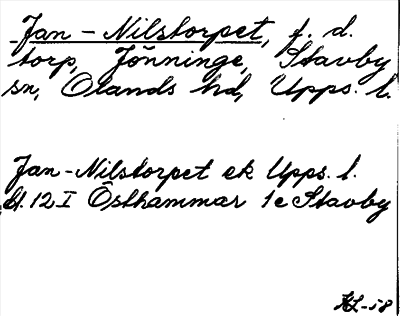 Jan-Nilstorpet, f. d.
torp, Jönninge, Stavby
sn, Olands hd, Upps. l.
Jan-Nilstorpet ek Upps. l.
bl. 12 I Östhammar 1e Stavby
HL-58